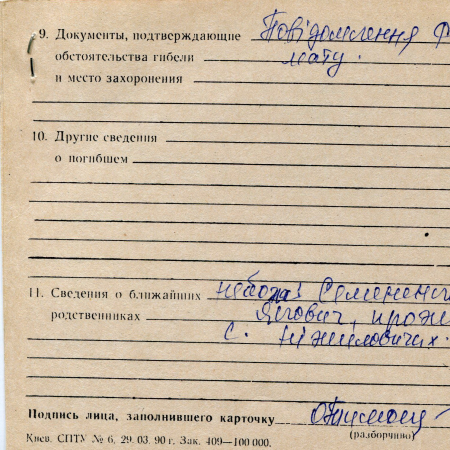 9. Документы, подтверждающие Повідомлення
обстоятельства гибели мату.
и место захоронения
10. Другие сведения
о погибшем
11. Сведения о ближайших небога
родственниках прож
с.
Подпись лица, заполнившего карточку
(разборчиво)
Киев. СПТУ № 6. 29. 03. 90 г. Зак. 409—100 000.